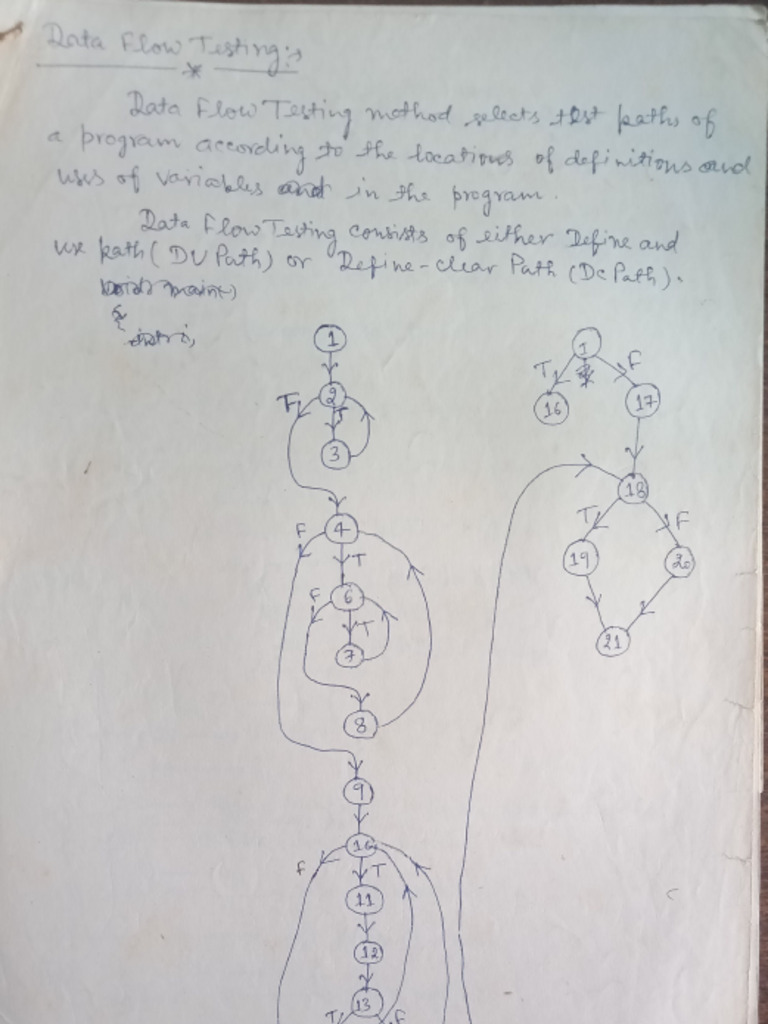 Data Flow Testing:-
Data Flow Testing method selects test paths of
a program according to the locations of definitions and
uses of variables and in the program.
Data Flow Testing consists of either Define and
use path (DU Path) or Define-clear Path (Dc Path).
void main()
{
1
2
F
T
3
4
F
T
6
F
T
7
8
9
10
F
T
11
12
13
T
F
1
T
F
16
17
18
T
F
19
20
21